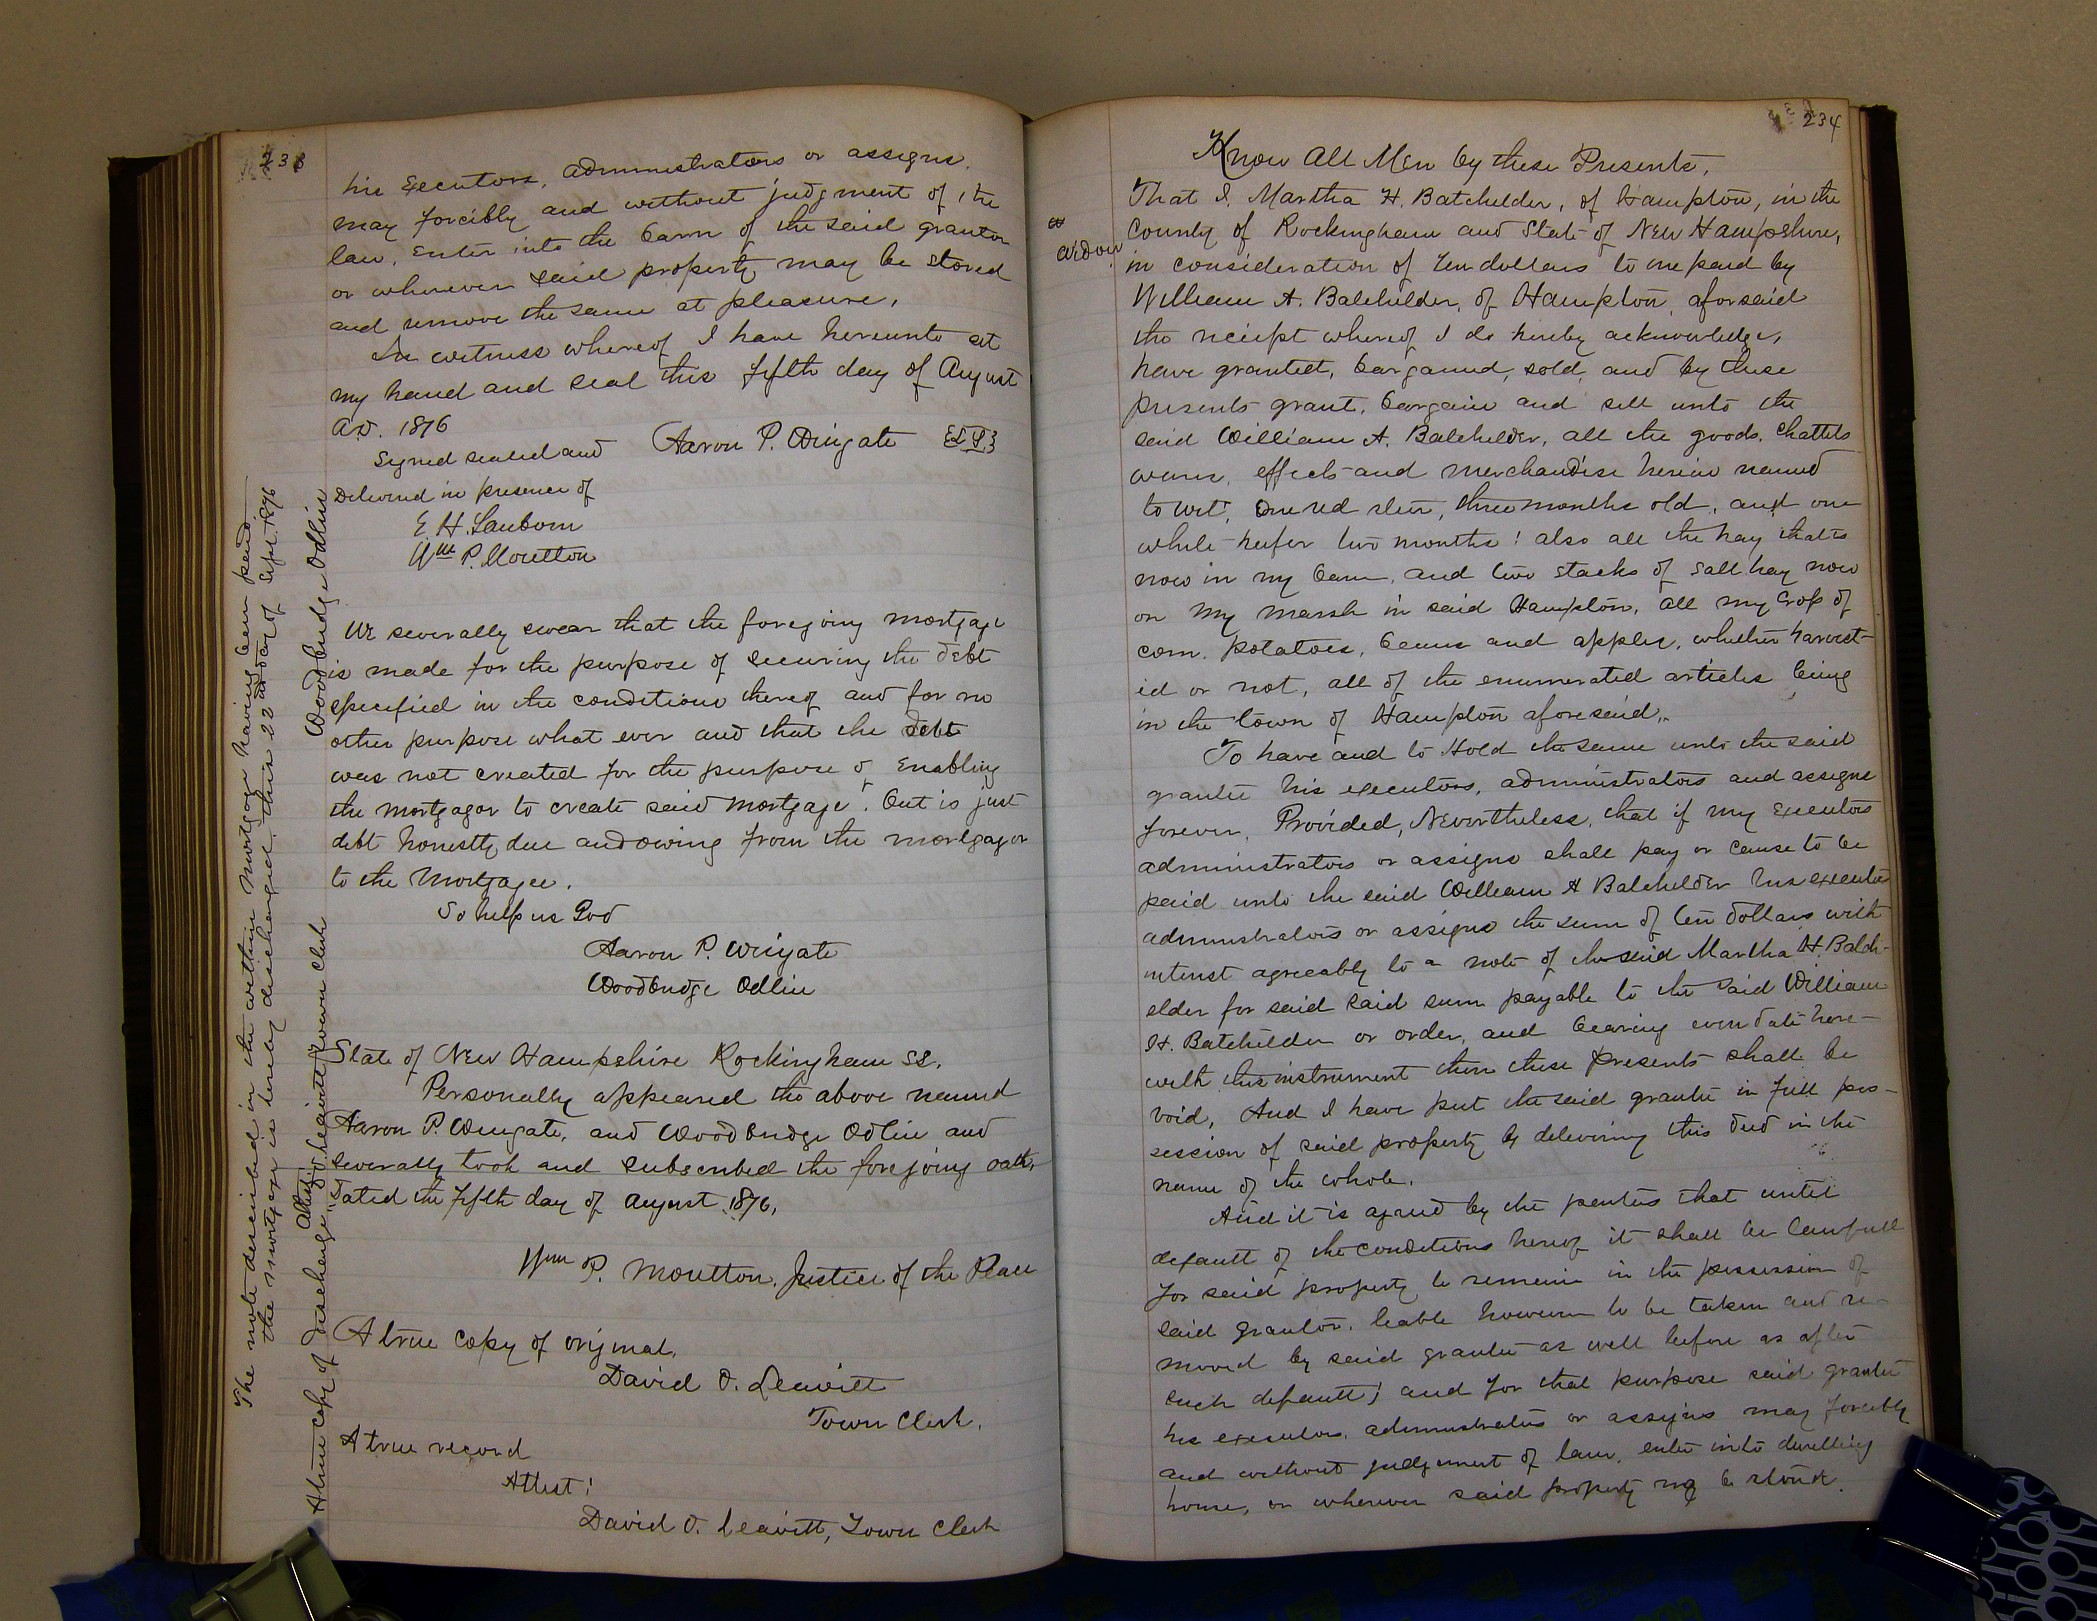 233
his Executors, administrators or assigns,
may forcibly and without judgment of the
law, Enter into the barn of the said grantor
or wherever said property may be stored
and remove the same at pleasure,
In witness whereof I have hereunto set
my hand and seal this fifth day of August
A.D. 1876
Signed sealed and Aaron P. Wingate {L.S.}
Delivered in presence of
E. H. Sanborn
Wm P. Moulton
We severally swear that the foregoing mortgage
is made for the purpose of securing the debt
specified in the conditions thereof and for no
other purpose what ever and that the debt
was not created for the purpose of Enabling
the mortgagor to create said mortgage, but is just
debt honestly due and owing from the mortgagor
to the Mortgagee.
So help us God
Aaron P. Wingate
Woodbridge Odlin
State of New Hampshire Rockingham SS.
Personally appeared the above named
Aaron P. Wingate, and Woodbridge Odlin and
severally took and subscribed the foregoing oath,
Dated the fifth day of August 1876,
Wm P. Moulton, Justice of the Peace
A true copy of original,
David O. Leavitt
Town Clerk.
A true record
Attest:
David O. Leavitt, Town Clerk
The note described in the within Mortgage having been paid
the mortgage is hereby discharged, this 22nd day of Sept. 1896
Woodbridge Odlin
A true copy of discharge, Attest: D. O. Leavitt Town Clerk
234
Know All Men by these Presents,
That I, Martha H. Batchelder, of Hampton, in the
County of Rockingham and State of New Hampshire,
widow
in consideration of ten dollars to me paid by
William A. Batchelder, of Hampton, aforsaid
the reciept whereof I do hereby acknowledge,
have granted, bargained, sold, and by these
presents grant, bargain and sell unto the
said William A. Batchelder, all the goods, Chattels
wares, effects and merchandise herein named
to wit; One red steer, three months old, and one
white heifer two months; also all the hay that is
now in my barn, and two stacks of salt hay now
on my marsh in said Hampton, all my crop of
corn, potatoes, beans and apples, whether harvest-
ed or not, all of the enumerated articles being
in the town of Hampton aforesaid,
To have and to Hold the same unto the said
grantee his executors, administrators and assigns
forever, Provided, Nevertheless, that if my Executors
administrators or assigns shall pay or cause to be
paid unto the said William A Batchelder his executors
administrators or assigns the sum of ten dollars with
interest agreeably to a note of the said Martha H. Batch-
elder for said said sum payable to the said William
H. Batchelder or order, and bearing even date here-
with this instrument then these presents shall be
void, And I have put the said grantee in full pos-
session of said property by delivering this deed in the
name of the whole.
And it is agreed by the parties that until
default of the conditions hereof it shall be lawfull
for said property to remain in the possession of
said grantor, leable however to be taken and re-
moved by said grantee as well before as after
such default; and for that purpose said grantee
his executors, administrators or assigns may forcibly
and without judgement of law, enter into dwelling
house, or wherever said property may be stored.